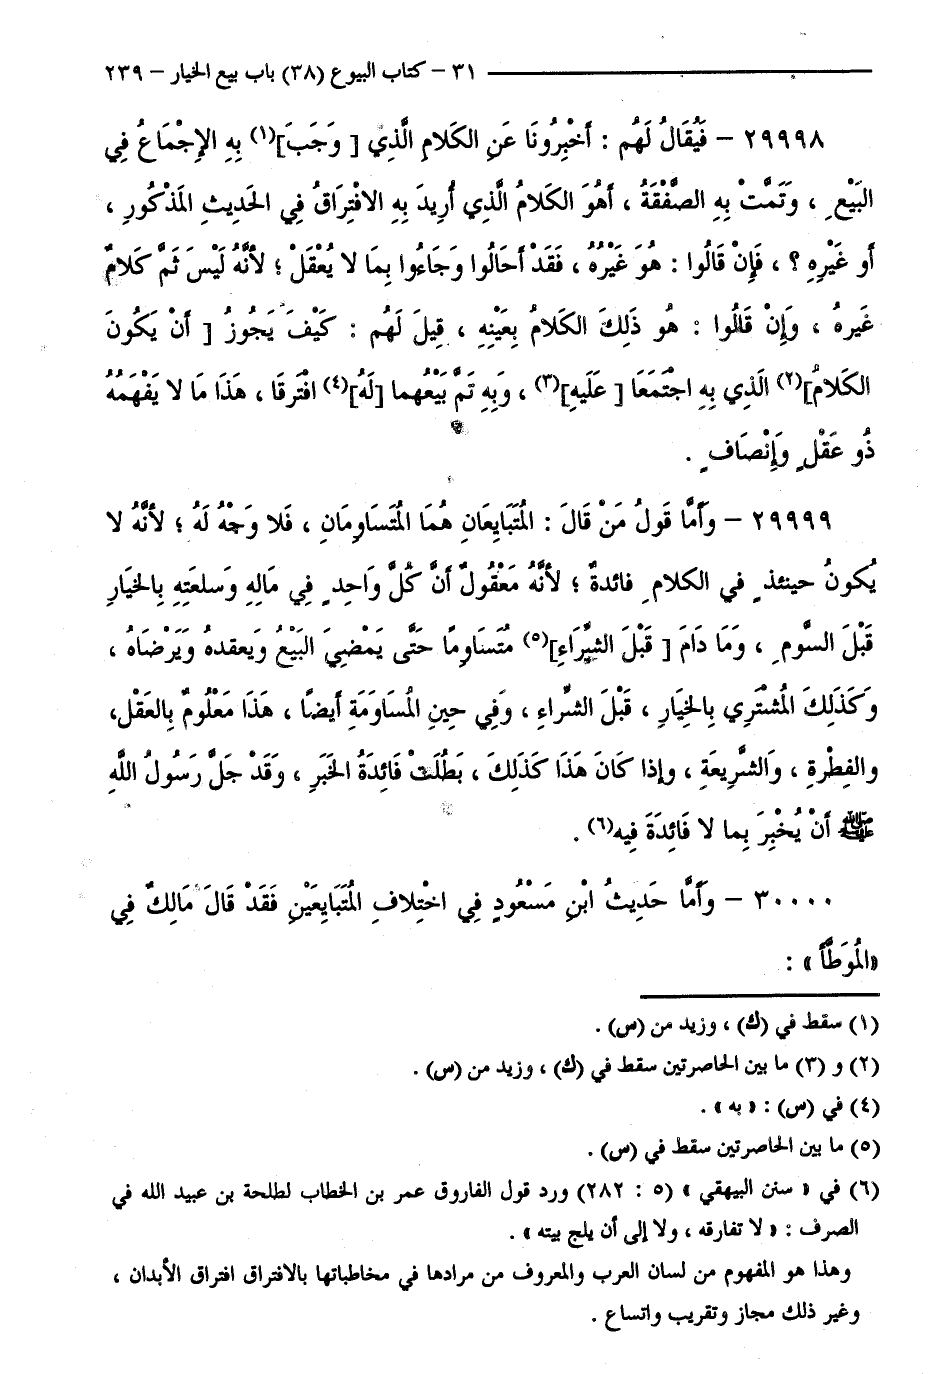 ٣١ – كتاب البيوع (٣٨) باب بيع الخيار – ٢٣٩
٢٩٩٩٨ – فَيُقَالُ لَهُم : أَخْبِرُونَا عَنِ الكَلامِ الَّذِي [ وَجَبَ](١) بِهِ الإِجْمَاعُ فِي
البَيْعِ ، وَتَمَّتْ بِهِ الصَّفْقَةُ ، أَهُوَ الكَلامُ الَّذِي أُرِيدَ بِهِ الافْتِرَاقُ فِي الحَدِيثِ المَذْكُورِ ،
أَو غَيْرِهِ ؟ ، فَإِنْ قَالُوا : هُوَ غَيْرُهُ ، فَقَدْ أَحَالُوا وَجَاءُوا بِمَا لا يُعْقَلْ ؛ لأَنَّهُ لَيْسَ ثَمَّ كَلامٌ
غَيرهُ ، وَإِنْ قَالُوا : هُو ذَلِكَ الكَلامُ بِعَيْنِهِ ، قِيلَ لَهُم : كَيْفَ يَجُوزُ [ أَنْ يَكُونَ
الكَلامُ](٢) الَّذِي بِهِ اجْتَمَعَا [ عَلَيهِ](٣) ، وَبِهِ تَمَّ بَيْعُهما [لَهُ](٤) افْتَرقَا ، هَذَا مَا لا يَفْهَمُهُ
ذُو عَقْلٍ وَإِنْصَافٍ .
٢٩٩٩٩ – وَأَمَّا قَولُ مَنْ قَالَ : المُتَبَايِعَانِ هُمَا المُتَسَاوِمَانِ ، فَلا وَجْهُ لَهُ ؛ لأَنَّهُ لا
يُكونُ حينئذٍ في الكلامِ فائدةٌ ؛ لأَنَّهُ مَعْقُولٌ أَنَّ كُلَّ وَاحِدٍ فِي مَالِهِ وَسلعَتِهِ بِالخِيَارِ
قَبْلَ السَّومِ ، وَمَا دَامَ [ قَبْلَ الشِّرَاءِ](٥) مُتَسَاوِمًا حَتَّى يَمْضِيَ البَيْعُ وَيَعقدهُ وَيَرْضَاهُ ،
وَكَذَلِكَ المُشْتَرِي بِالخِيَارِ ، قَبْلَ الشّراءِ ، وَفِي حينِ المُسَاوَمَةِ أَيضًا ، هَذَا مَعْلُومٌ بِالعَقْلِ،
والفِطْرةِ ، وَالشَّرِيعَةِ ، وإذا كَانَ هَذَا كَذَلِكَ ، بَطُلَتْ فَائِدَةُ الخَبَرِ ، وَقَدْ جَلَّ رَسُولُ اللَّهِ
ﷺ أَنْ يُخْبِرَ بِما لا فَائِدَةَ فِيهِ(٦) .
٣٠٠٠٠ – وَأَمَّا حَدِيثُ ابْنِ مَسْعُودٍ فِي اخْتِلافِ المُتَبَايِعَيْنِ فَقَدْ قَالَ مَالِكٌ فِي
«المُوَطَّأ» :
(١) سقط في (ك) ، وزيد من (س) .
(٢) و (٣) ما بين الحاصرتين سقط في (ك) ، وزيد من (س) .
(٤) في (س) : « به » .
(٥) ما بين الحاصرتين سقط في (س) .
(٦) في « سنن البيهقي » (٥ : ٢٨٢) ورد قول الفاروق عمر بن الخطاب لطلحة بن عبيد الله في
الصرف : « لا تفارقه ، ولا إلى أن يلج بيته » .
وهذا هو المفهوم من لسان العرب والمعروف من مرادها في مخاطباتها بالافتراق افتراق الأبدان ،
وغير ذلك مجاز وتقريب واتساع .